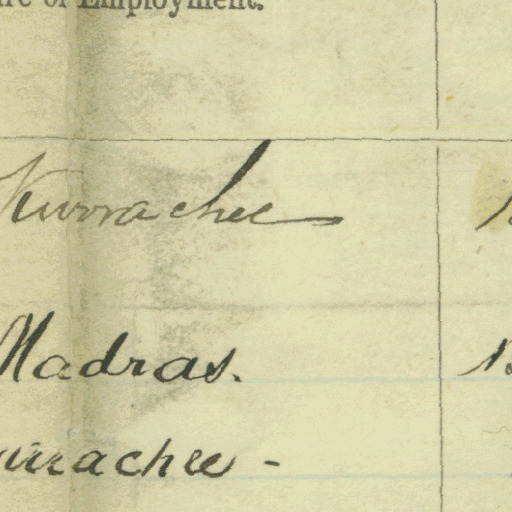 of Employment.
Kurrachee
Madras.
urrachee -